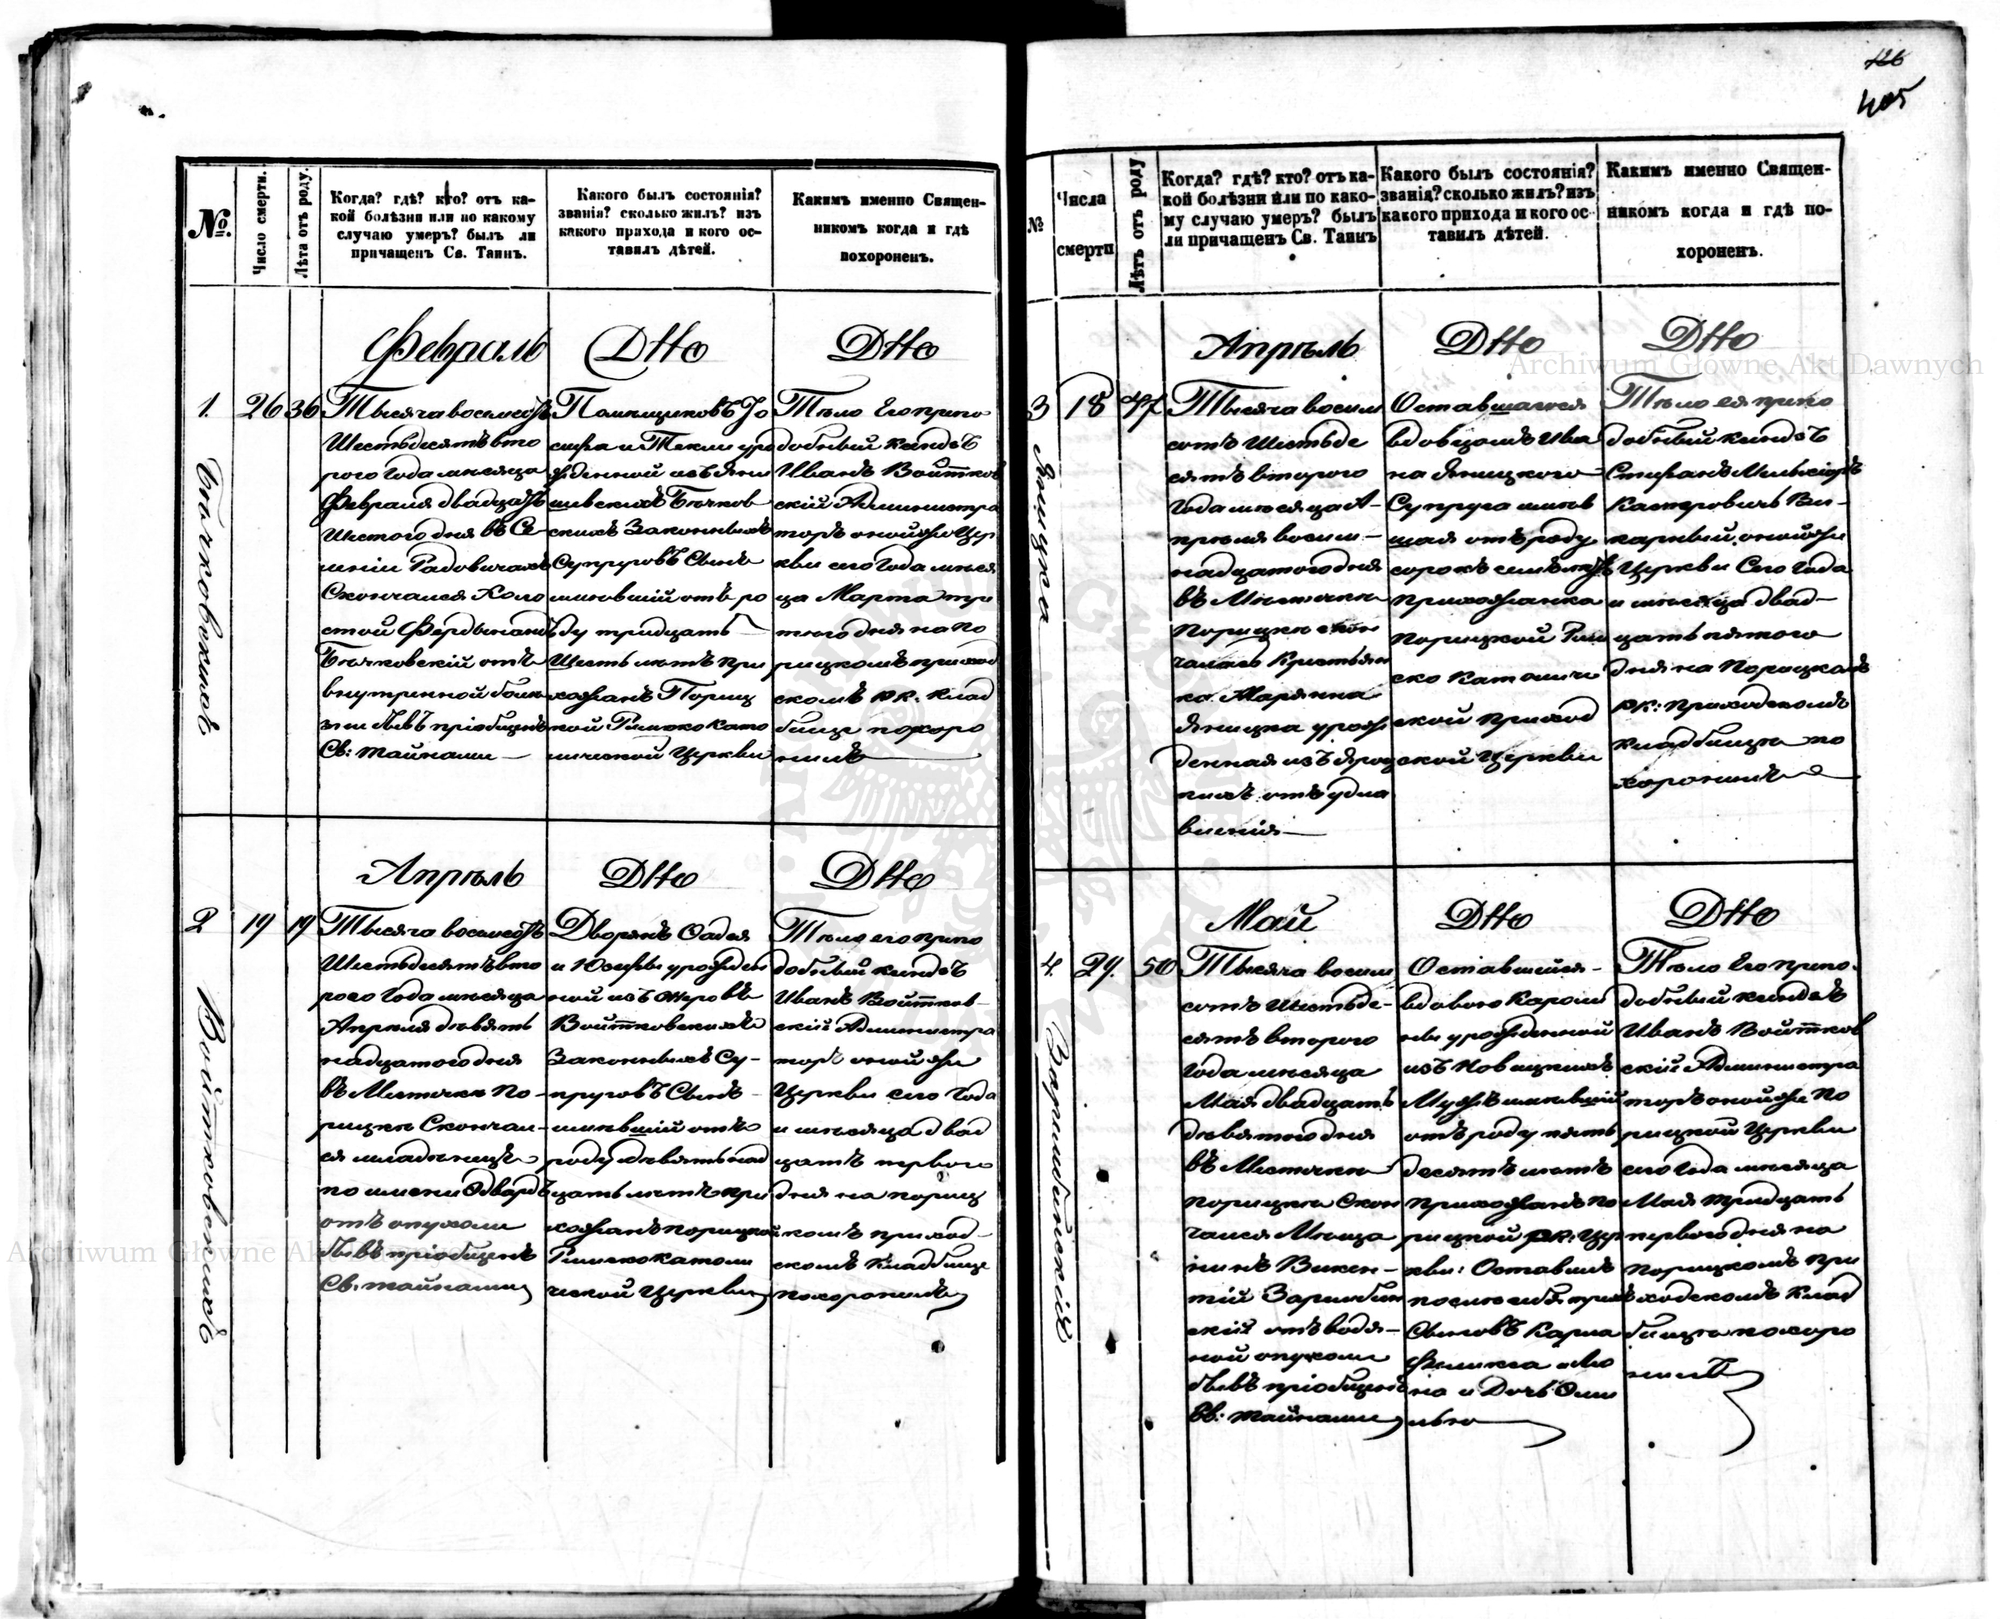 126
405
№.
Число смерти.
Лѣта отъ роду.
Когда? гдѣ? кто? отъ ка-
кой болѣзни или по какому
случаю умеръ? былъ ли
причащенъ Св. Таинъ.
Какого былъ состоянія?
званія? сколько жилъ? изъ
какого прихода и кого ос-
тавилъ дѣтей.
Какимъ именно Священ-
никомъ когда и гдѣ
похороненъ.
Февраль
Dtto
Dtto
1.
26
36
Бѣчковскихъ
Тысяча восемсотъ
Шестьдесятъ вто
рого Года мѣсяца
Февраля двадцать
Шестого дня въ Се-
леніи Радовичахъ
Скончался Холо
стой Фердинандъ
Бѣчковскій отъ
внутренной болѣ
зни бывъ пріобщенъ
Св: тайнами —
Помѣщиковъ Іо
сифа и Текли уро
жденной изъ
Бѣчков
скихъ Законныхъ
Супруговъ Сынъ
имѣвшій отъ ро
ду тридцать
Шесть лѣтъ при
хожанъ Пориц
кой Римско Като
лической Церкви
Тѣло Его препо
добный ксіондзъ
Иванъ Войтков
скій Администра
торъ оной же Цер
кви сего Года мѣся
ца Марта тре
тяго дня на По
рицкомъ приход
скомъ р.к. клад
бище похоро
ненъ
Апрѣль
Dtto
Dtto
2
19
19
Войтковскихъ
Тысяча восемсотъ
Шестьдесятъ вто
рого Года мѣсяца
Апрѣля девять
надцатого дня
въ Мѣстечкѣ По-
рицкѣ Скончал-
ся младенецъ
по имени Эдвардъ
отъ опухоли
бывъ пріобщенъ
Св: тайнами
Дворянъ
и Юзефы урожден
ной изъ
Войтковскихъ
Законныхъ Су-
пруговъ Сынъ
имѣвшій отъ
роду девятьнад
цать лѣтъ при
хожанъ Порицкой
Римско катол
ической Церкви
Тѣло его препо
добный ксіондзъ
Иванъ Войтков-
скій Администра
торъ оной же
Церкви сего Года
и мѣсяца двад
цать перваго
дня на Пориц
комъ приход-
скомъ кладбище
похороненъ
№
Числа
смерти
Лѣтъ отъ роду
Когда? гдѣ? кто? отъ ка-
кой болѣзни или по како-
му случаю умеръ? былъ
ли причащенъ Св. Таинъ
Какого былъ состоянія?
званія? сколько жилъ? изъ
какого прихода и кого ос-
тавилъ дѣтей.
Какимъ именно Священ-
никомъ когда и гдѣ по-
хороненъ.
Апрѣль
Dtto
Dtto
3
18
47
Тысяча восем
сотъ Шестьде
сятъ второго
Года мѣсяца А-
прѣля восем-
надцатого дня
въ Мѣстечкѣ
Порицкѣ скон
чалась Крестьян
ка Марянна
урож
денная изъ
кихъ отъ удав
ленія —
Оставшагося
вдовцомъ Ива
на
Супруга имѣв
шая отъ роду
сорокъ семь лѣтъ
прихожанка
Порицкой Рим
ско Католиче
ской Приход
ской Церкви
Тѣло ея препо
добный ксіондзъ
Стефанъ Мельхіоръ
Ви-
карный оной же
Церкви Сего Года
и мѣсяца двад-
цать пятого
дня на Порицкомъ
рк: Приходскомъ
кладбищѣ по
хороненъ
Май
Dtto
Dtto
4.
29.
50
Зарембинскій
Тысяча восем
сотъ Шестьде-
сятъ второго
Года мѣсяца
Мая двадцать
девятого дня
въ Мѣстечкѣ
Порицкѣ Скон
чался Мѣща
нинъ Викен-
тій Зарембин
скій отъ водя-
ной опухоли
бывъ пріобщенъ
Св: тайнами
Оставшейся -
вдовою Кароли
ны урожденной
изъ Новицкихъ
Мужъ имѣвшій
отъ роду пять
десятъ лѣтъ
прихожанъ По
рицкой рк: Цер
кви: Оставилъ
после себя трехъ
Сыновъ Карла
Феликса
и Дочь Эми
лью
Тѣло Его препо-
добный ксіондзъ
Иванъ Войтков
скій Администра
торъ оной же По
рицкой Церкви
сего Года мѣсяца
Мая тридцать
перваго дня на
Порицкомъ при
ходскомъ клад
бищѣ похоро
ненъ
Archiwum Główne Akt Dawnych
Archiwum Główne Akt